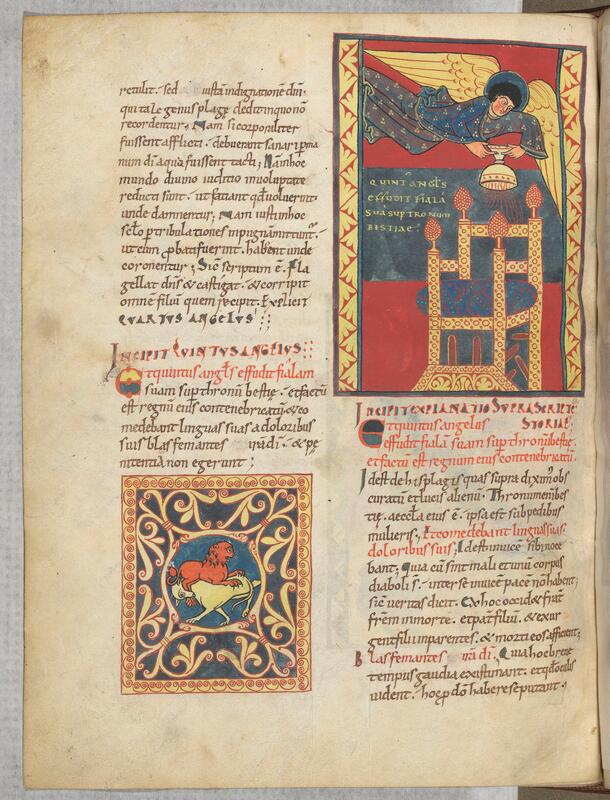 retulit. sed iusta indignatione dni
qui tale genus plagę dedit in quo nō
recordentur; Nam si corporaliter
fuissent afflicti. debuerant sanari p ma
num di a quo fuissent tacti; N in hoc
mundo divino iudicio in voluptate
reducti sunt. ut faciant qđ voluerint
unde damnentur; Nam iusti in hoc
sclō p tribulationes inpugnantur.
ut cum pbati fuerint. habent unde
coronentur; Sic scriptum ē. Fla
gellat dns & castigat. & corripit
omnē filiū quem recipit. Explicit
QUARTUS ANGELUS
INCIPIT QUINTUS ANGELUS
Et quintus angls effudit fialam
suam sup thronū bestię. et factū
est regnū eius contenebricatū & co
medebant linguas suas a doloribus
suis blasfemantes di. & pę
nitentia non egerunt;
QUINT ANGLS
EFFUDIT FIALA
SUA SUP TRONUM
BISTIAE
INCIPIT EXPLANATIO SUPRA SCRIPTE
STORIAE
Et quintus angelus
effudit fialā suam sup thronū bestię.
et factū est regnum eius contenebricatū.
Id est de his plagis quas supra diximꝰ obs
curatū et lucis alienū. Thronum bes
tię. aeccla eius ē. ipsa est sub pedibus
mulieris; Et comedebant linguas suas
doloribus suis; Id est invicē sibi noce
bant; Qua cū sint mali et unū corpus
diaboli s. inter se invicē pacē nō habent;
sic veritas dicit. Ex hoc occid & frat
frēm in morte. et pat filiū. & exur
gent filii in parentes. & morti eos afficient;
Blasfemantes di; Qui a hoc breve
tempus gaudia existimant. et qđ oculis
vident. hoc p dō habere se putant.